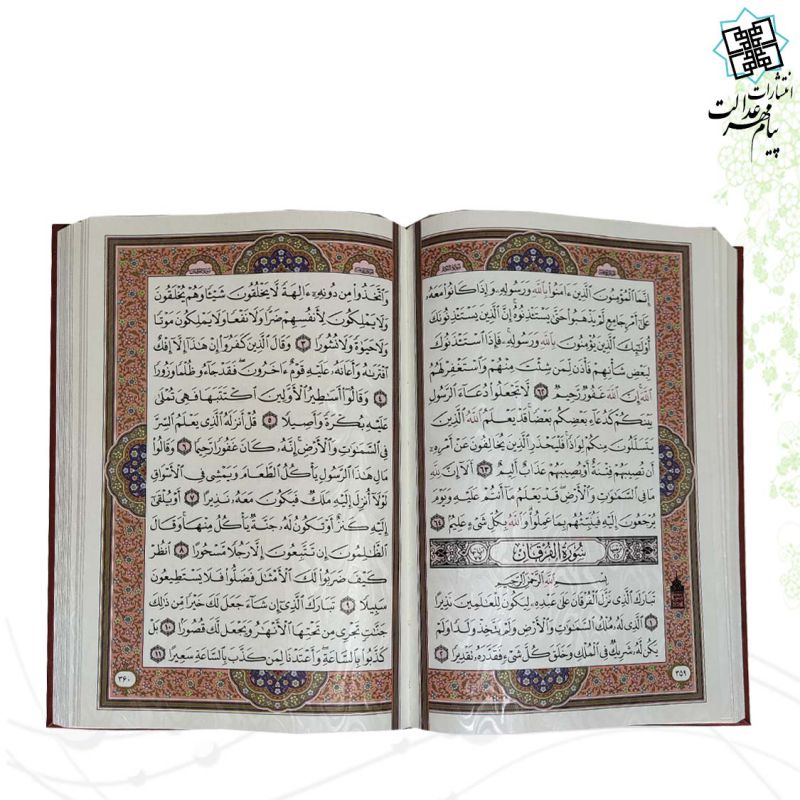 انتشارات
پیام مهر عدالت
إِنَّمَا الْمُؤْمِنُونَ الَّذِينَ ءَامَنُوا بِاللَّهِ وَرَسُولِهِ وَإِذَا كَانُوا مَعَهُ
عَلَىٰ أَمْرٍ جَامِعٍ لَّمْ يَذْهَبُوا حَتَّىٰ يَسْتَأْذِنُوهُ إِنَّ الَّذِينَ يَسْتَأْذِنُونَكَ
أُولَٰئِكَ الَّذِينَ يُؤْمِنُونَ بِاللَّهِ وَرَسُولِهِ فَإِذَا اسْتَأْذَنُوكَ
لِبَعْضِ شَأْنِهِمْ فَأْذَن لِّمَن شِئْتَ مِنْهُمْ وَاسْتَغْفِرْ لَهُمُ
اللَّهَ إِنَّ اللَّهَ غَفُورٌ رَّحِيمٌ ٦٢ لَّا تَجْعَلُوا دُعَاءَ الرَّسُولِ
بَيْنَكُمْ كَدُعَاءِ بَعْضِكُم بَعْضًا قَدْ يَعْلَمُ اللَّهُ الَّذِينَ
يَتَسَلَّلُونَ مِنكُمْ لِوَاذًا فَلْيَحْذَرِ الَّذِينَ يُخَالِفُونَ عَنْ أَمْرِهِ
أَن تُصِيبَهُمْ فِتْنَةٌ أَوْ يُصِيبَهُمْ عَذَابٌ أَلِيمٌ ٦٣ أَلَا إِنَّ لِلَّهِ
مَا فِي السَّمَٰوَٰتِ وَالْأَرْضِ قَدْ يَعْلَمُ مَا أَنتُمْ عَلَيْهِ وَيَوْمَ
يُرْجَعُونَ إِلَيْهِ فَيُنَبِّئُهُم بِمَا عَمِلُوا وَاللَّهُ بِكُلِّ شَيْءٍ عَلِيمٌ ٦٤
سُورَةُ الْفُرْقَانِ
بِسْمِ اللَّهِ الرَّحْمَٰنِ الرَّحِيمِ
تَبَارَكَ الَّذِي نَزَّلَ الْفُرْقَانَ عَلَىٰ عَبْدِهِ لِيَكُونَ لِلْعَالَمِينَ نَذِيرًا
١ الَّذِي لَهُ مُلْكُ السَّمَٰوَٰتِ وَالْأَرْضِ وَلَمْ يَتَّخِذْ وَلَدًا وَلَمْ
يَكُن لَّهُ شَرِيكٌ فِي الْمُلْكِ وَخَلَقَ كُلَّ شَيْءٍ فَقَدَّرَهُ تَقْدِيرًا ٢
٣٥٩
وَاتَّخَذُوا مِن دُونِهِ ءَالِهَةً لَّا يَخْلُقُونَ شَيْئًا وَهُمْ يُخْلَقُونَ
وَلَا يَمْلِكُونَ لِأَنفُسِهِمْ ضَرًّا وَلَا نَفْعًا وَلَا يَمْلِكُونَ مَوْتًا
وَلَا حَيَوٰةً وَلَا نُشُورًا ٣ وَقَالَ الَّذِينَ كَفَرُوا إِنْ هَٰذَا إِلَّا إِفْكٌ
افْتَرَىٰهُ وَأَعَانَهُ عَلَيْهِ قَوْمٌ ءَاخَرُونَ فَقَدْ جَاءُو ظُلْمًا وَزُورًا
٤ وَقَالُوا أَسَاطِيرُ الْأَوَّلِينَ اكْتَتَبَهَا فَهِيَ تُمْلَىٰ
عَلَيْهِ بُكْرَةً وَأَصِيلًا ٥ قُلْ أَنزَلَهُ الَّذِي يَعْلَمُ السِّرَّ
فِي السَّمَٰوَٰتِ وَالْأَرْضِ إِنَّهُ كَانَ غَفُورًا رَّحِيمًا ٦ وَقَالُوا
مَالِ هَٰذَا الرَّسُولِ يَأْكُلُ الطَّعَامَ وَيَمْشِي فِي الْأَسْوَاقِ
لَوْلَا أُنزِلَ إِلَيْهِ مَلَكٌ فَيَكُونَ مَعَهُ نَذِيرًا ٧ أَوْ يُلْقَىٰ
إِلَيْهِ كَنزٌ أَوْ تَكُونُ لَهُ جَنَّةٌ يَأْكُلُ مِنْهَا وَقَالَ
الظَّالِمُونَ إِن تَتَّبِعُونَ إِلَّا رَجُلًا مَّسْحُورًا ٨ انظُرْ
كَيْفَ ضَرَبُوا لَكَ الْأَمْثَالَ فَضَلُّوا فَلَا يَسْتَطِيعُونَ
سَبِيلًا ٩ تَبَارَكَ الَّذِي إِن شَاءَ جَعَلَ لَكَ خَيْرًا مِّن ذَٰلِكَ
جَنَّاتٍ تَجْرِي مِن تَحْتِهَا الْأَنْهَارُ وَيَجْعَل لَّكَ قُصُورًا ١٠ بَلْ
كَذَّبُوا بِالسَّاعَةِ وَأَعْتَدْنَا لِمَن كَذَّبَ بِالسَّاعَةِ سَعِيرًا ١١
٣۶٠